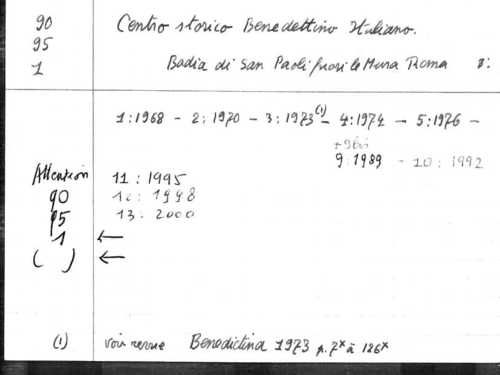 90 Centro storico Benedettino Italiano.
95
1 Badia di San Paoli fuori le Mura Roma
1:1968 - 2:1970 - 3:1973(1) - 4:1974 - 5:1976 -
+9bis
9:1989 - 10:1992
Attention 11:1995
90 12:1998
95 13:2000
1 ←
( ) ←
(1) voir revue Benedictina 1973 p. 7* à 126*